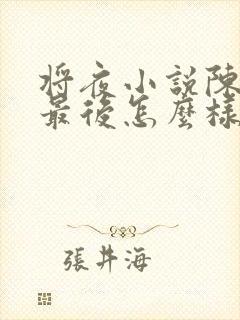 將夜小說陳
最後怎麼樣
張井海